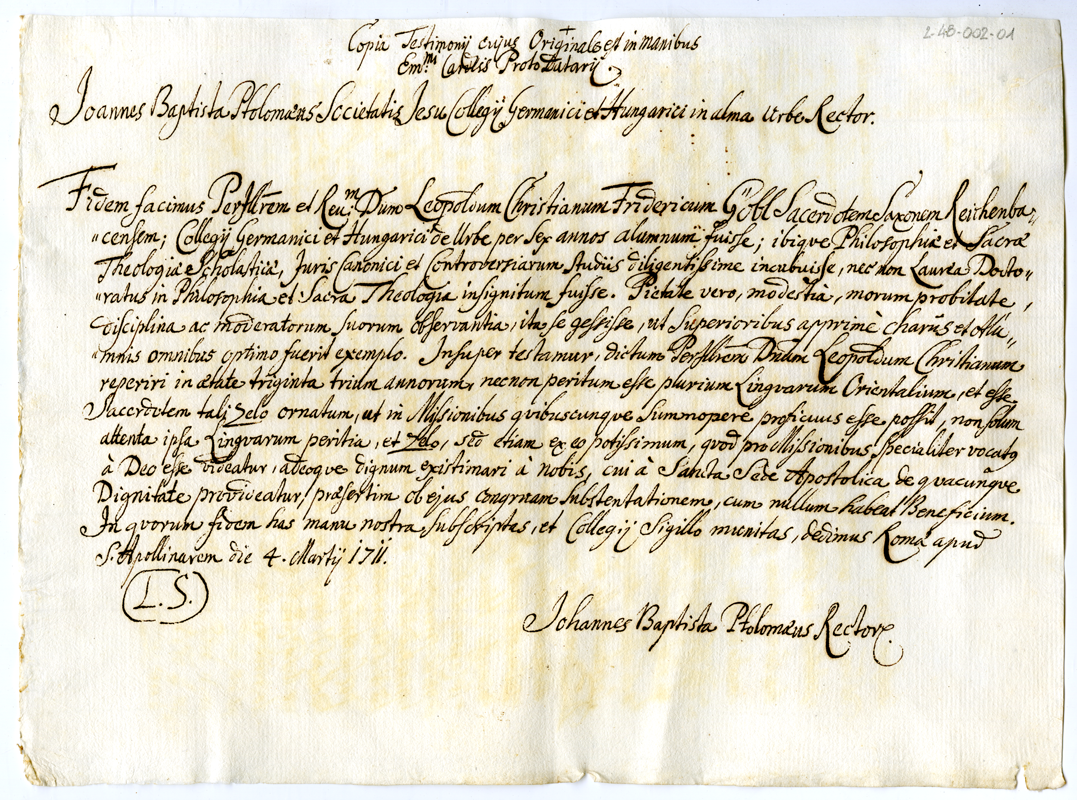 2-48-002-01
Copia Testimonij cujus Originale est in manibus
Em.mi Cardlis Proto Datarij.
Joannes Baptista Ptolomæus Societatis Jesu Collegij Germanici et Hungarici in alma Urbe Rector.
Fidem facimus PerIllrem et Reu.m Dum Leopoldum Christianum Fridericum Göbl Sacerdotem Saxonem Reichenba,,
,,censem; Collegij Germanici et Hungarici de Urbe per sex annos alumnum fuisse; ibique Philosophiæ et Sacræ
Theologiæ Scholasticæ, Juris Canonici et Controversiarum studiis diligentissime incubuisse, nec non Laurea Docto,,
,,ratus in Philosophia et Sacra Theologia insignitum fuisse. Pietate vero, modestia, morum probitate,
disciplina ac moderatorum suorum observantia, ita se gessisse, ut Superioribus apprimè charus et Alu,,
,,mnis omnibus optimo fuerit exemplo. Insuper testamur, dictum PerIllrem Dnum Leopoldum Christianum
reperiri in ætate triginta trium annorum, necnon peritum esse plurium Linguarum Orientalium, et esse
Sacerdotem tali Zelo ornatum, ut in Missionibus quibuscunque Summopere proficuus esse possit, non solum
attenta ipsa Linguarum peritia, et Zelo, sed etiam ex eo potissimum, quod pro Missionibus specialiter vocatq
à Deo esse videatur, adeoque dignum existimari à nobis, cui à Sancta Sede Apostolica de quacunque
Dignitate provideatur, præsertim ob ejus congruam substentationem, cum nullum habeat Beneficium.
In quorum fidem has manu nostra subscriptas, et Collegij Sigillo munitas, dedimus Romæ apud
S. Apollinarem die 4. Martij 1711.
L.S.
Johannes Baptista Ptolomæus Rector